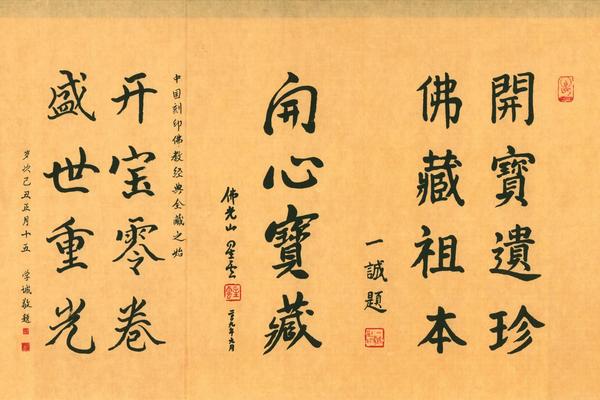 開寶遺珍
佛藏祖本
一誠題
開心寶藏
佛光山 星雲
中国刻印佛教经典全藏之始
开宝零卷
盛世重光
岁次己丑正月十五 学诚敬题